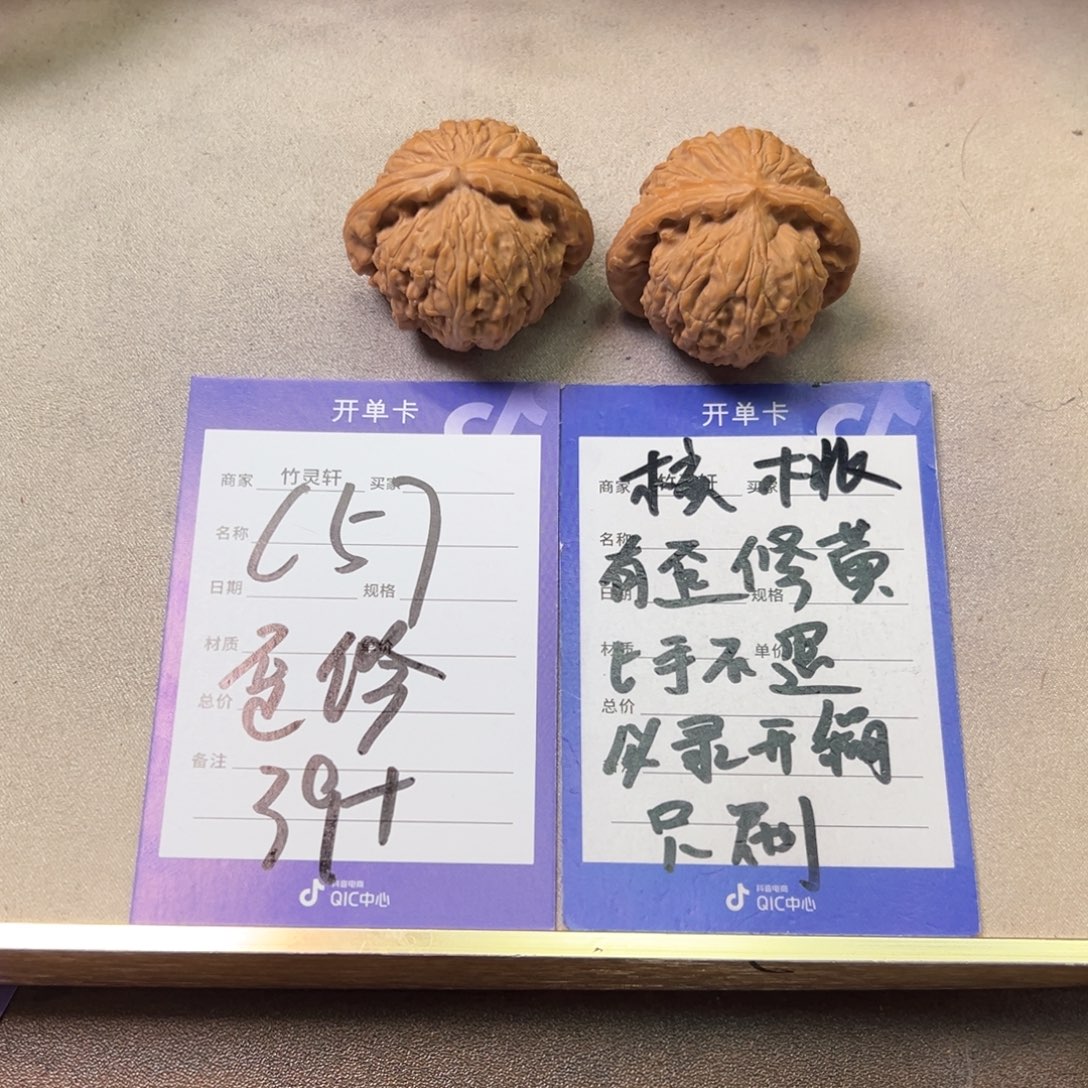 开单卡
商家 竹灵轩 买家
(5)
名称
日期 规格
材质 单价
修
总价
备注
39+
抖音电商
QIC中心
开单卡
商家 竹灵轩 买家
核桃
名称
有歪修黄
日期 规格
材质 单价
上手不退
总价
录开
只刷
抖音电商
QIC中心